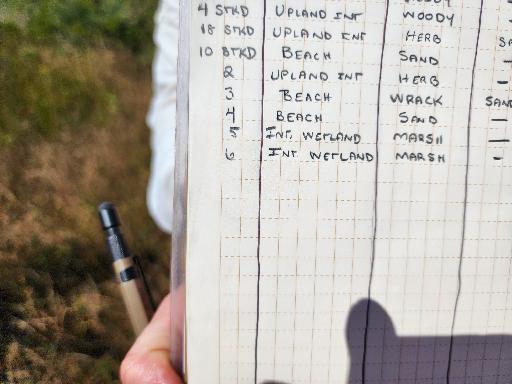 4 STKD UPLAND INT WOODY
18 STKD UPLAND INT HERB
10 STKD BEACH SAND
2 UPLAND INT HERB —
3 BEACH WRACK SAND
4 BEACH SAND —
5 INT WETLAND MARSH —
6 INT WETLAND MARSH -